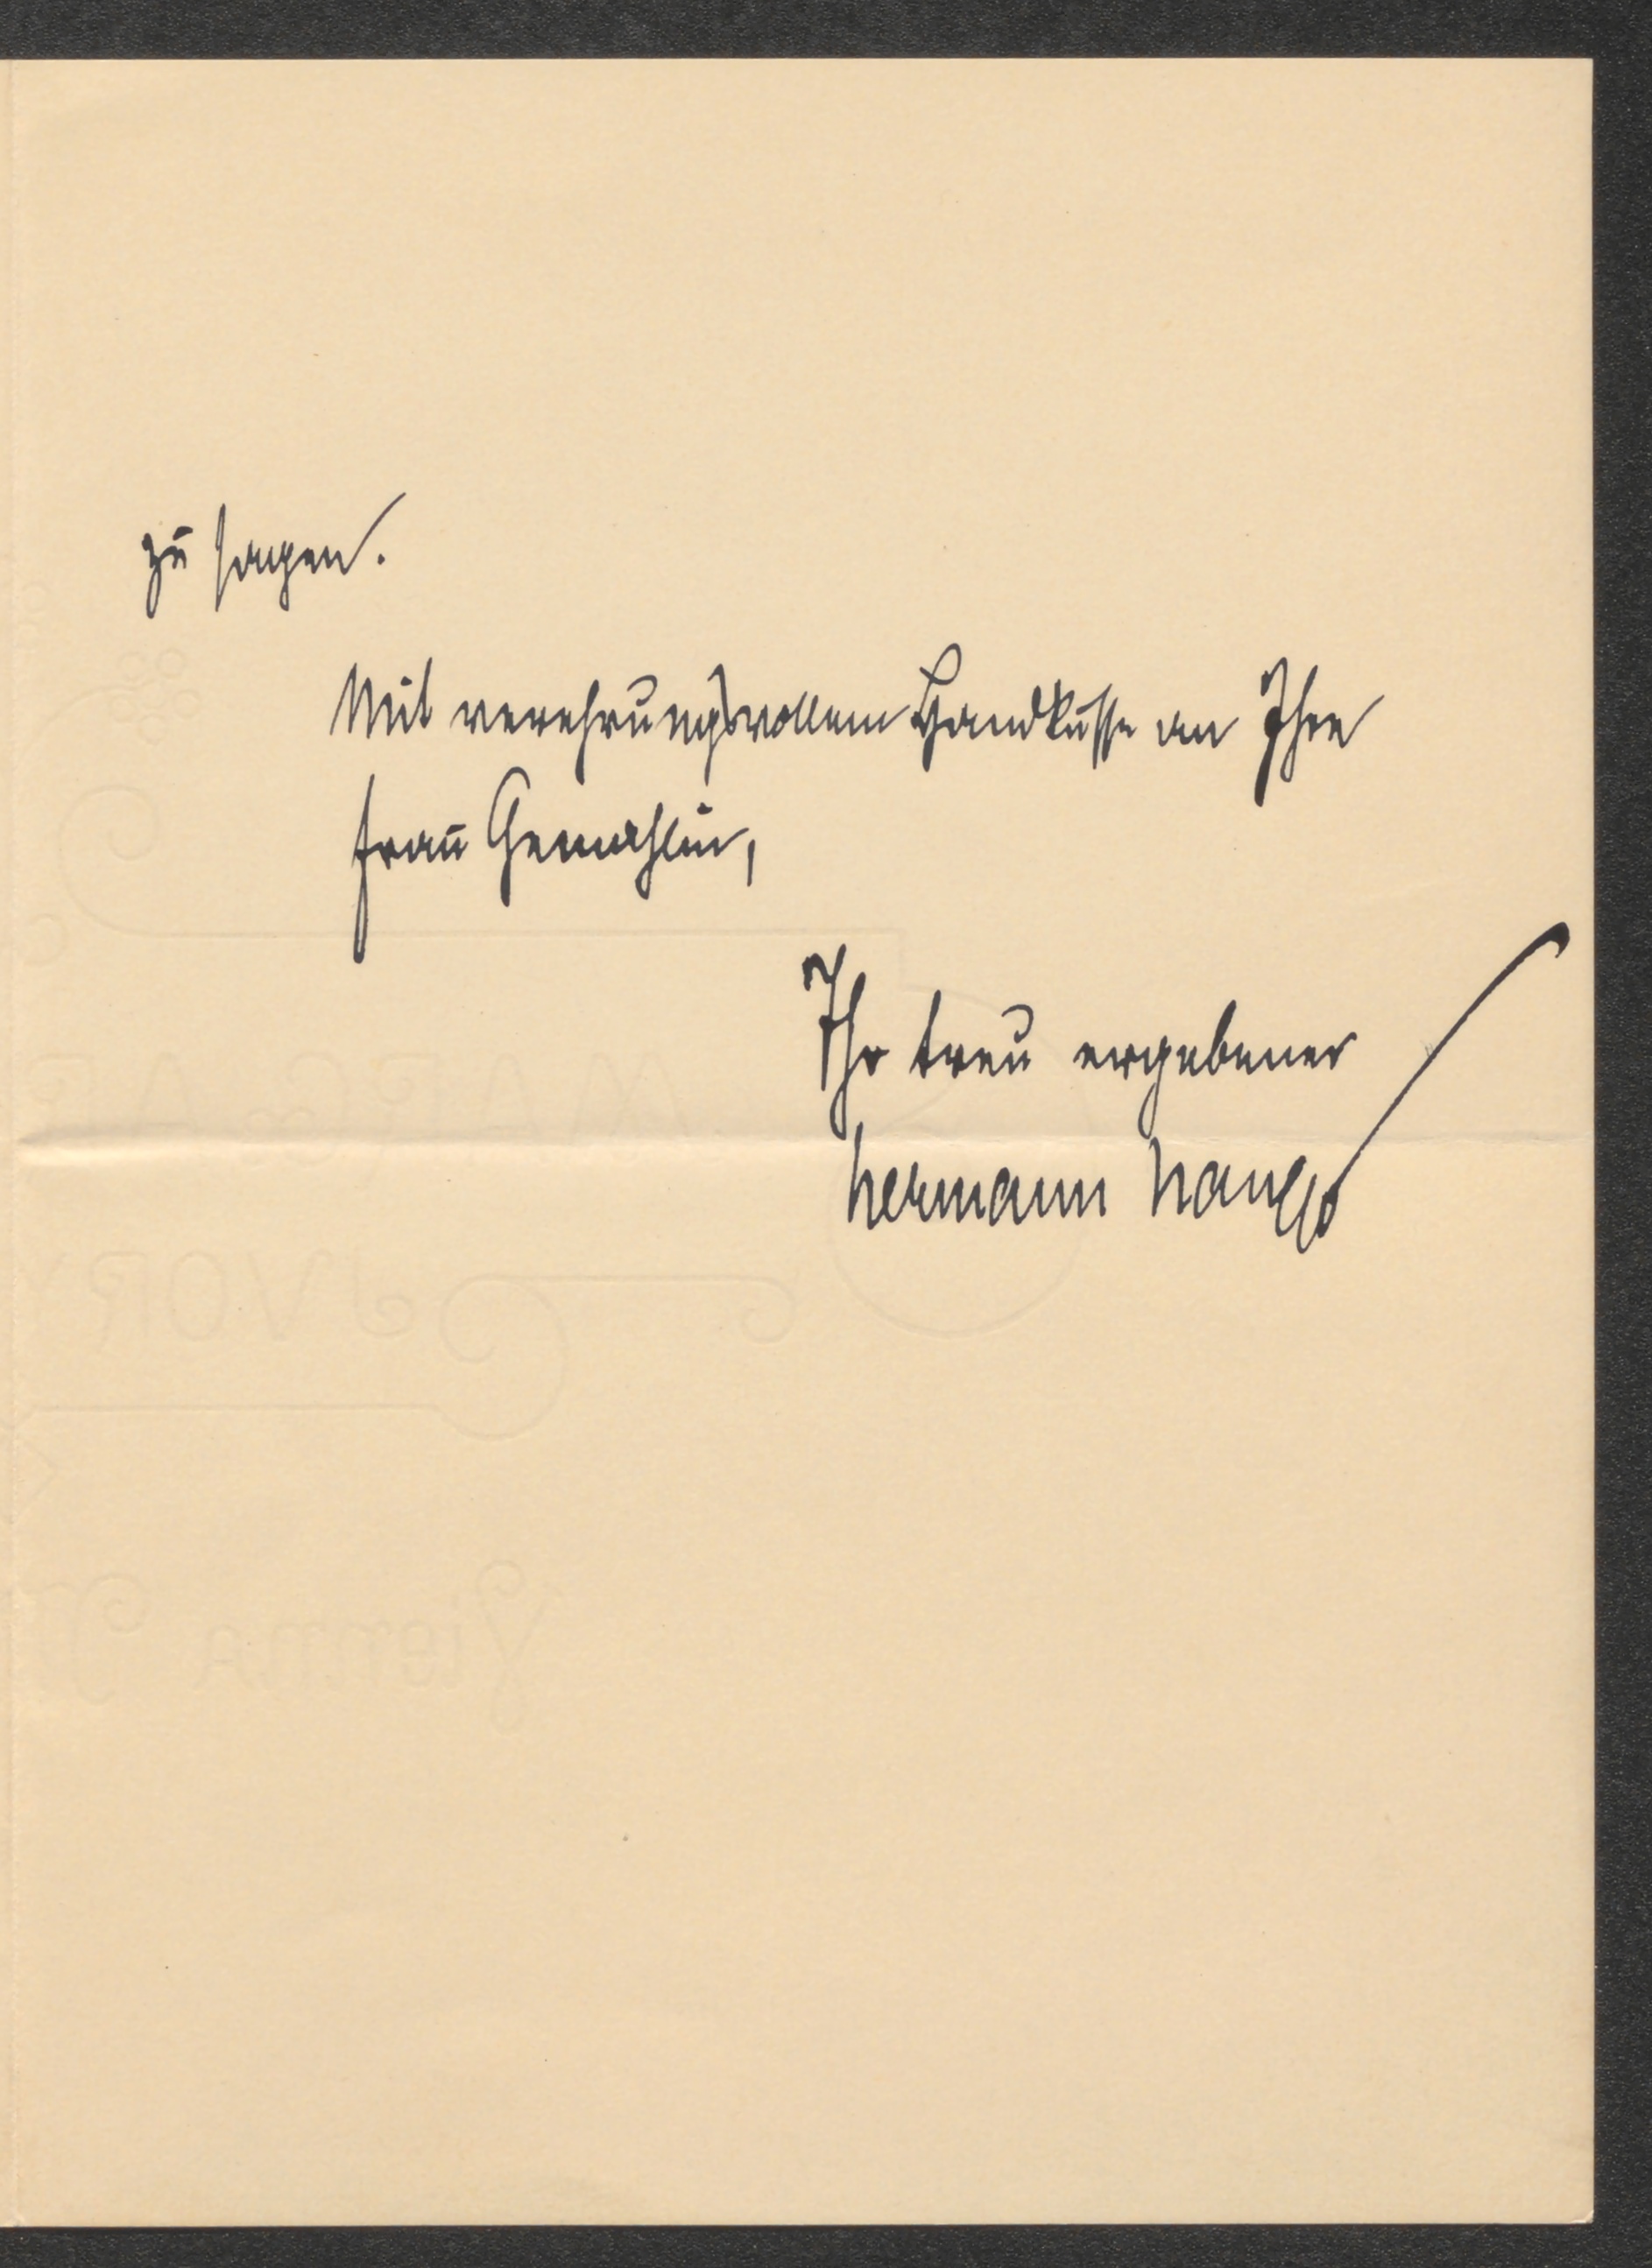 zu sagen.
Mit verehrungsvollem Handkusse an Ihre
Frau Gemahlin,
Ihr treu ergebener
Hermann
JVORY
Vienna